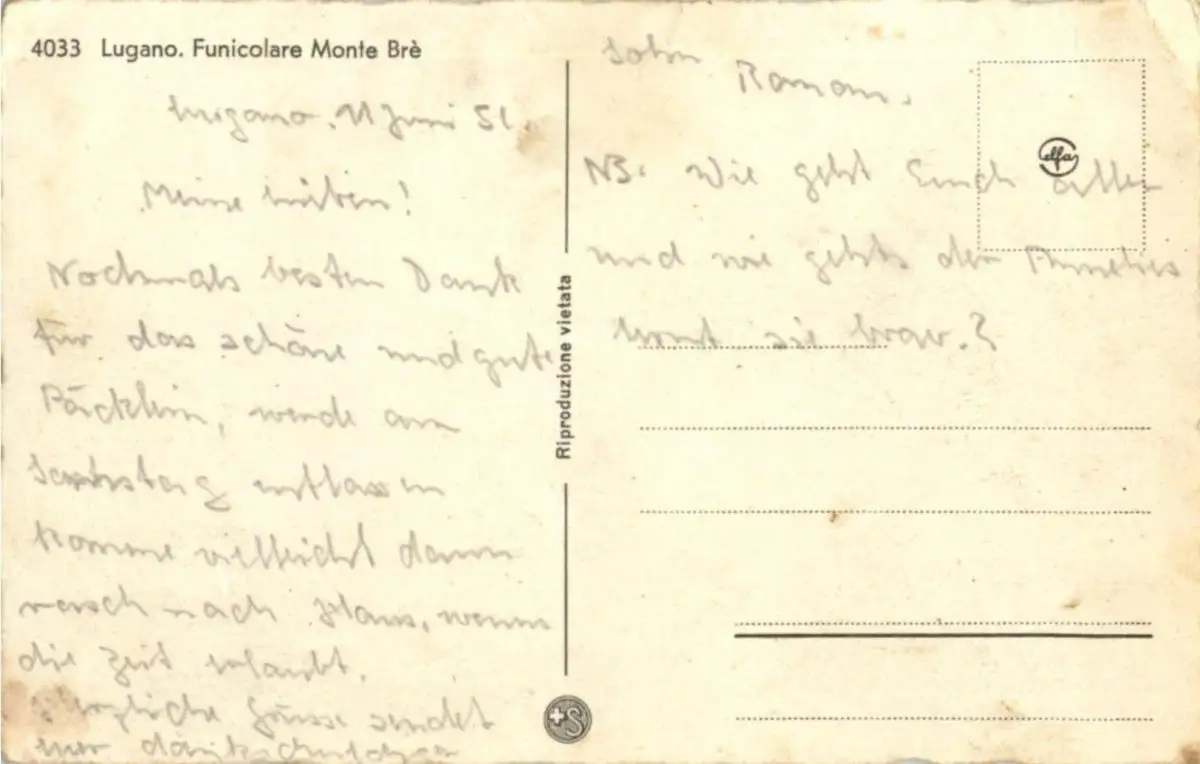 4033 Lugano. Funicolare Monte Brè
Lugano. 11 Juni 51.
Meine Lieben!
Nochmals besten Dank
für das schöne und gute
Päcklein, werde am
Samstag entlassen
komme vielleicht dann
rasch nach Haus, wenn
die Zeit erlaubt.
Herzliche Grüsse sendet
Euer dankschuldiger
Riproduzione vietata
Sohn
Roman.
NB. Wie geht Euch allen
und wie gehts den
sie brav.?
elfa
+S